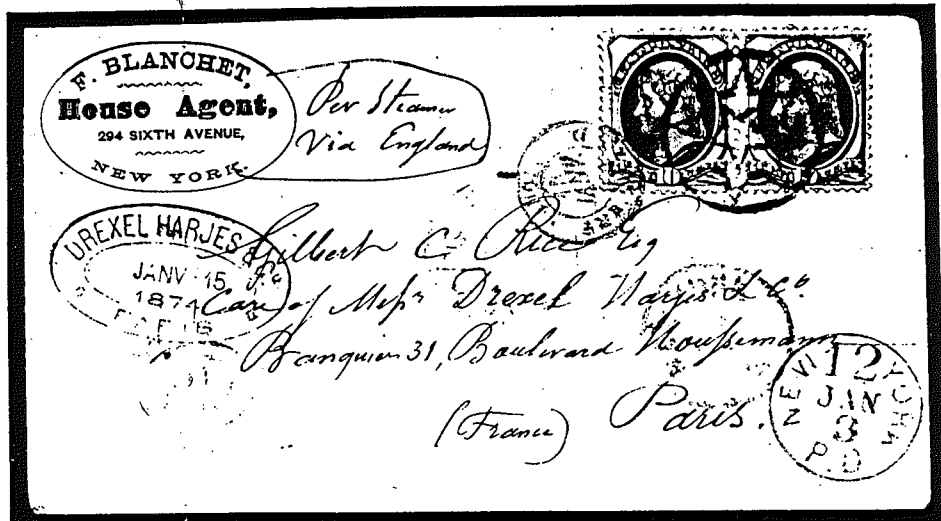 F. BLANCHET,
House Agent,
294 SIXTH AVENUE,
NEW YORK.
Per Steamer
Via England
DREXEL HARJES & Co
JANV 15
1874
PARIS
Gilbert C. Rice Esq
Care of Messrs Drexel Harjes & Co.
Banquiers 31, Boulevard Houssemann
Paris.
(France)
NEW YORK
12
JAN
3
P.D